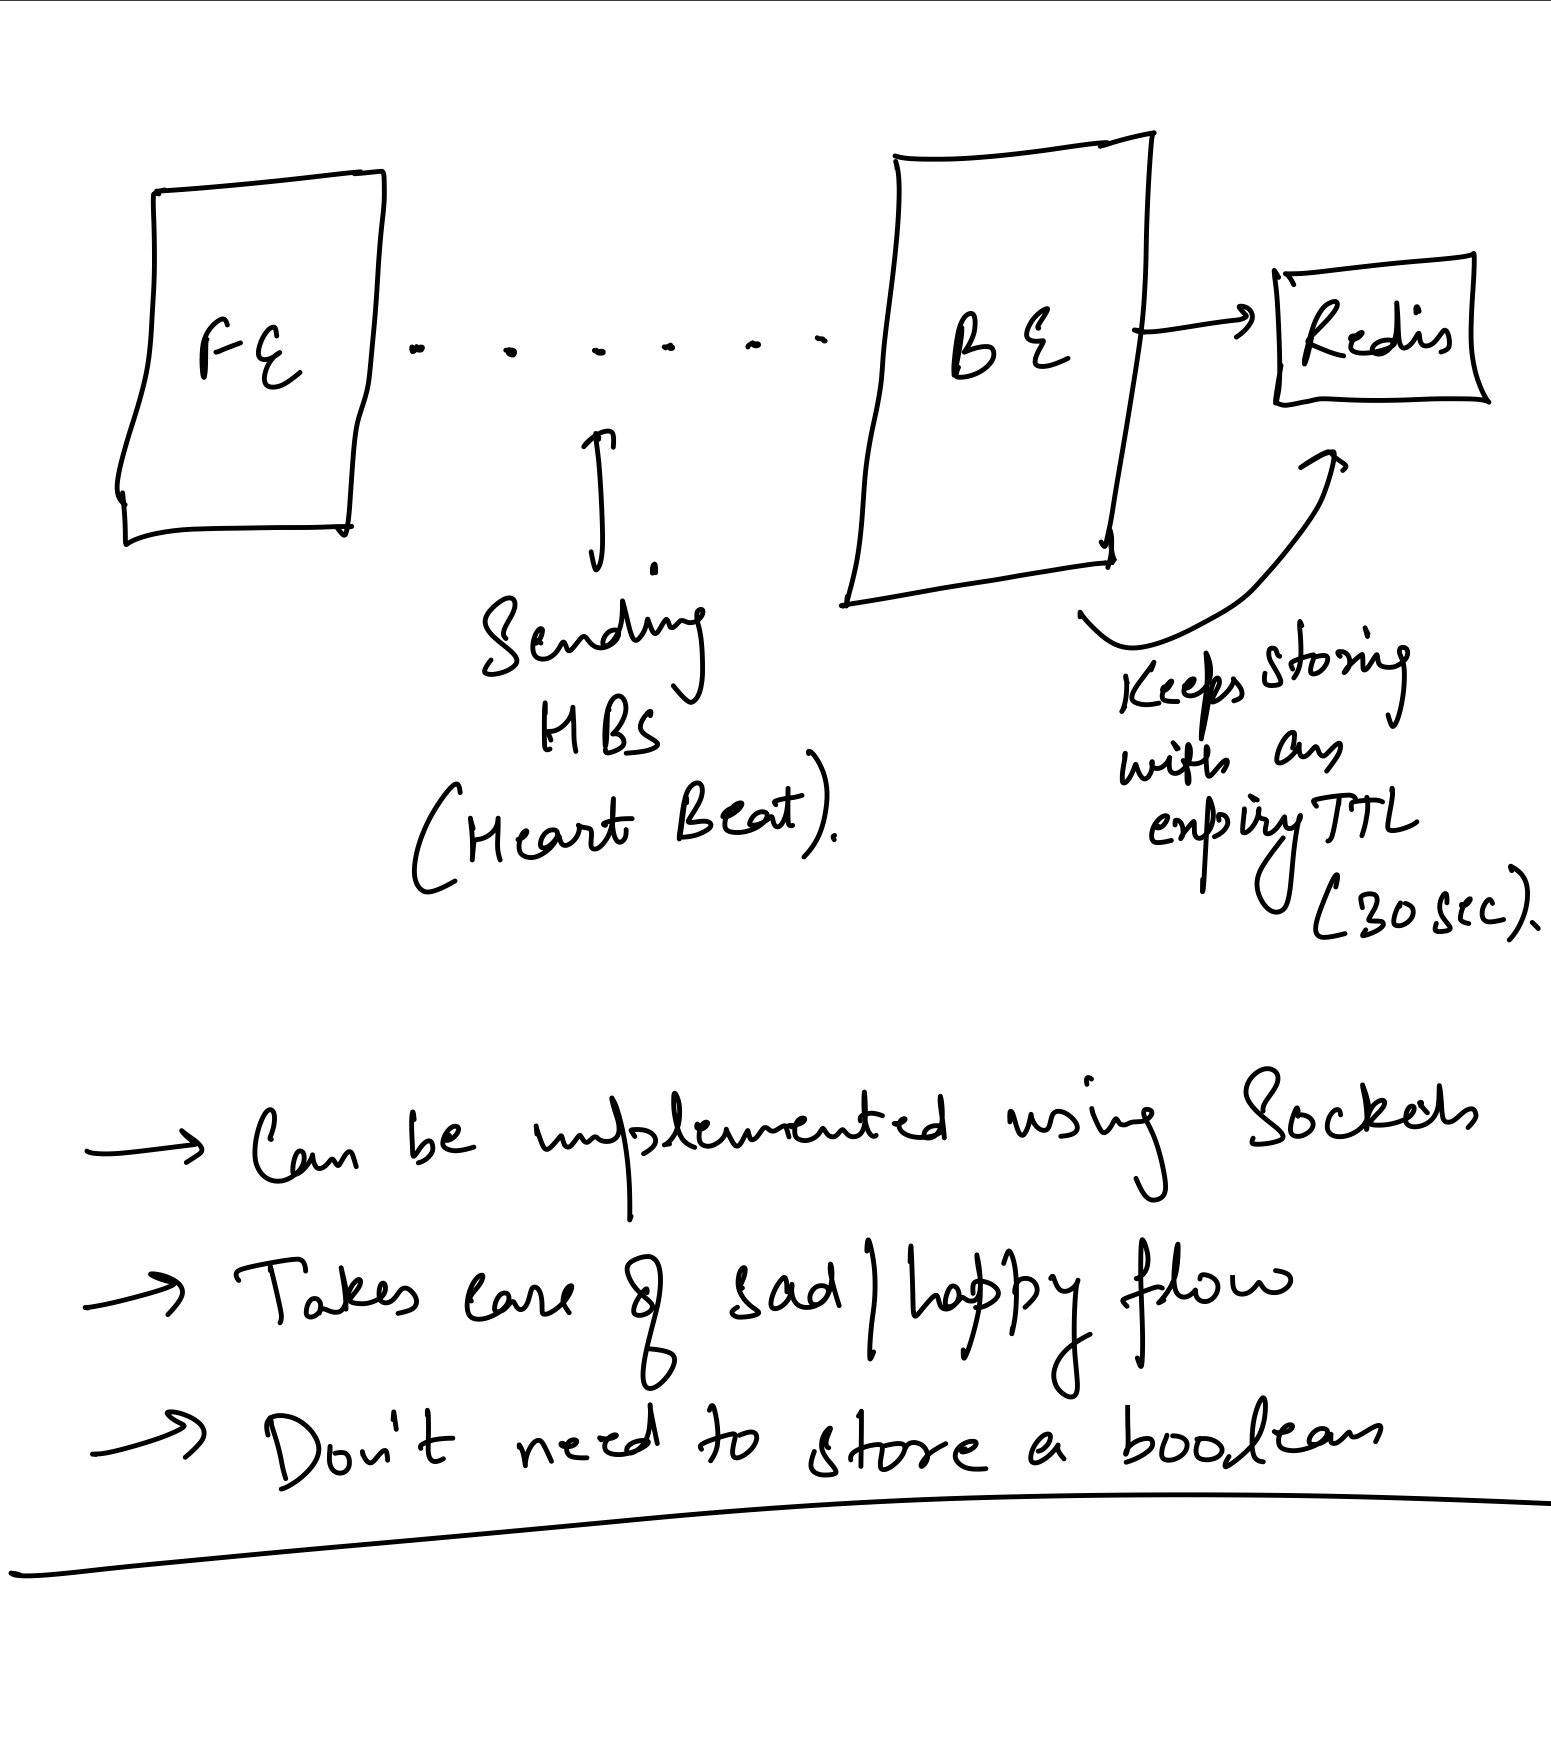 FE
BE
Redis
Sending
HBS
(Heart Beat).
Keeps storing
with an
expiry TTL
(30 sec).
→ Can be implemented using Sockets
→ Takes care of sad/happy flow
→ Don't need to store a boolean